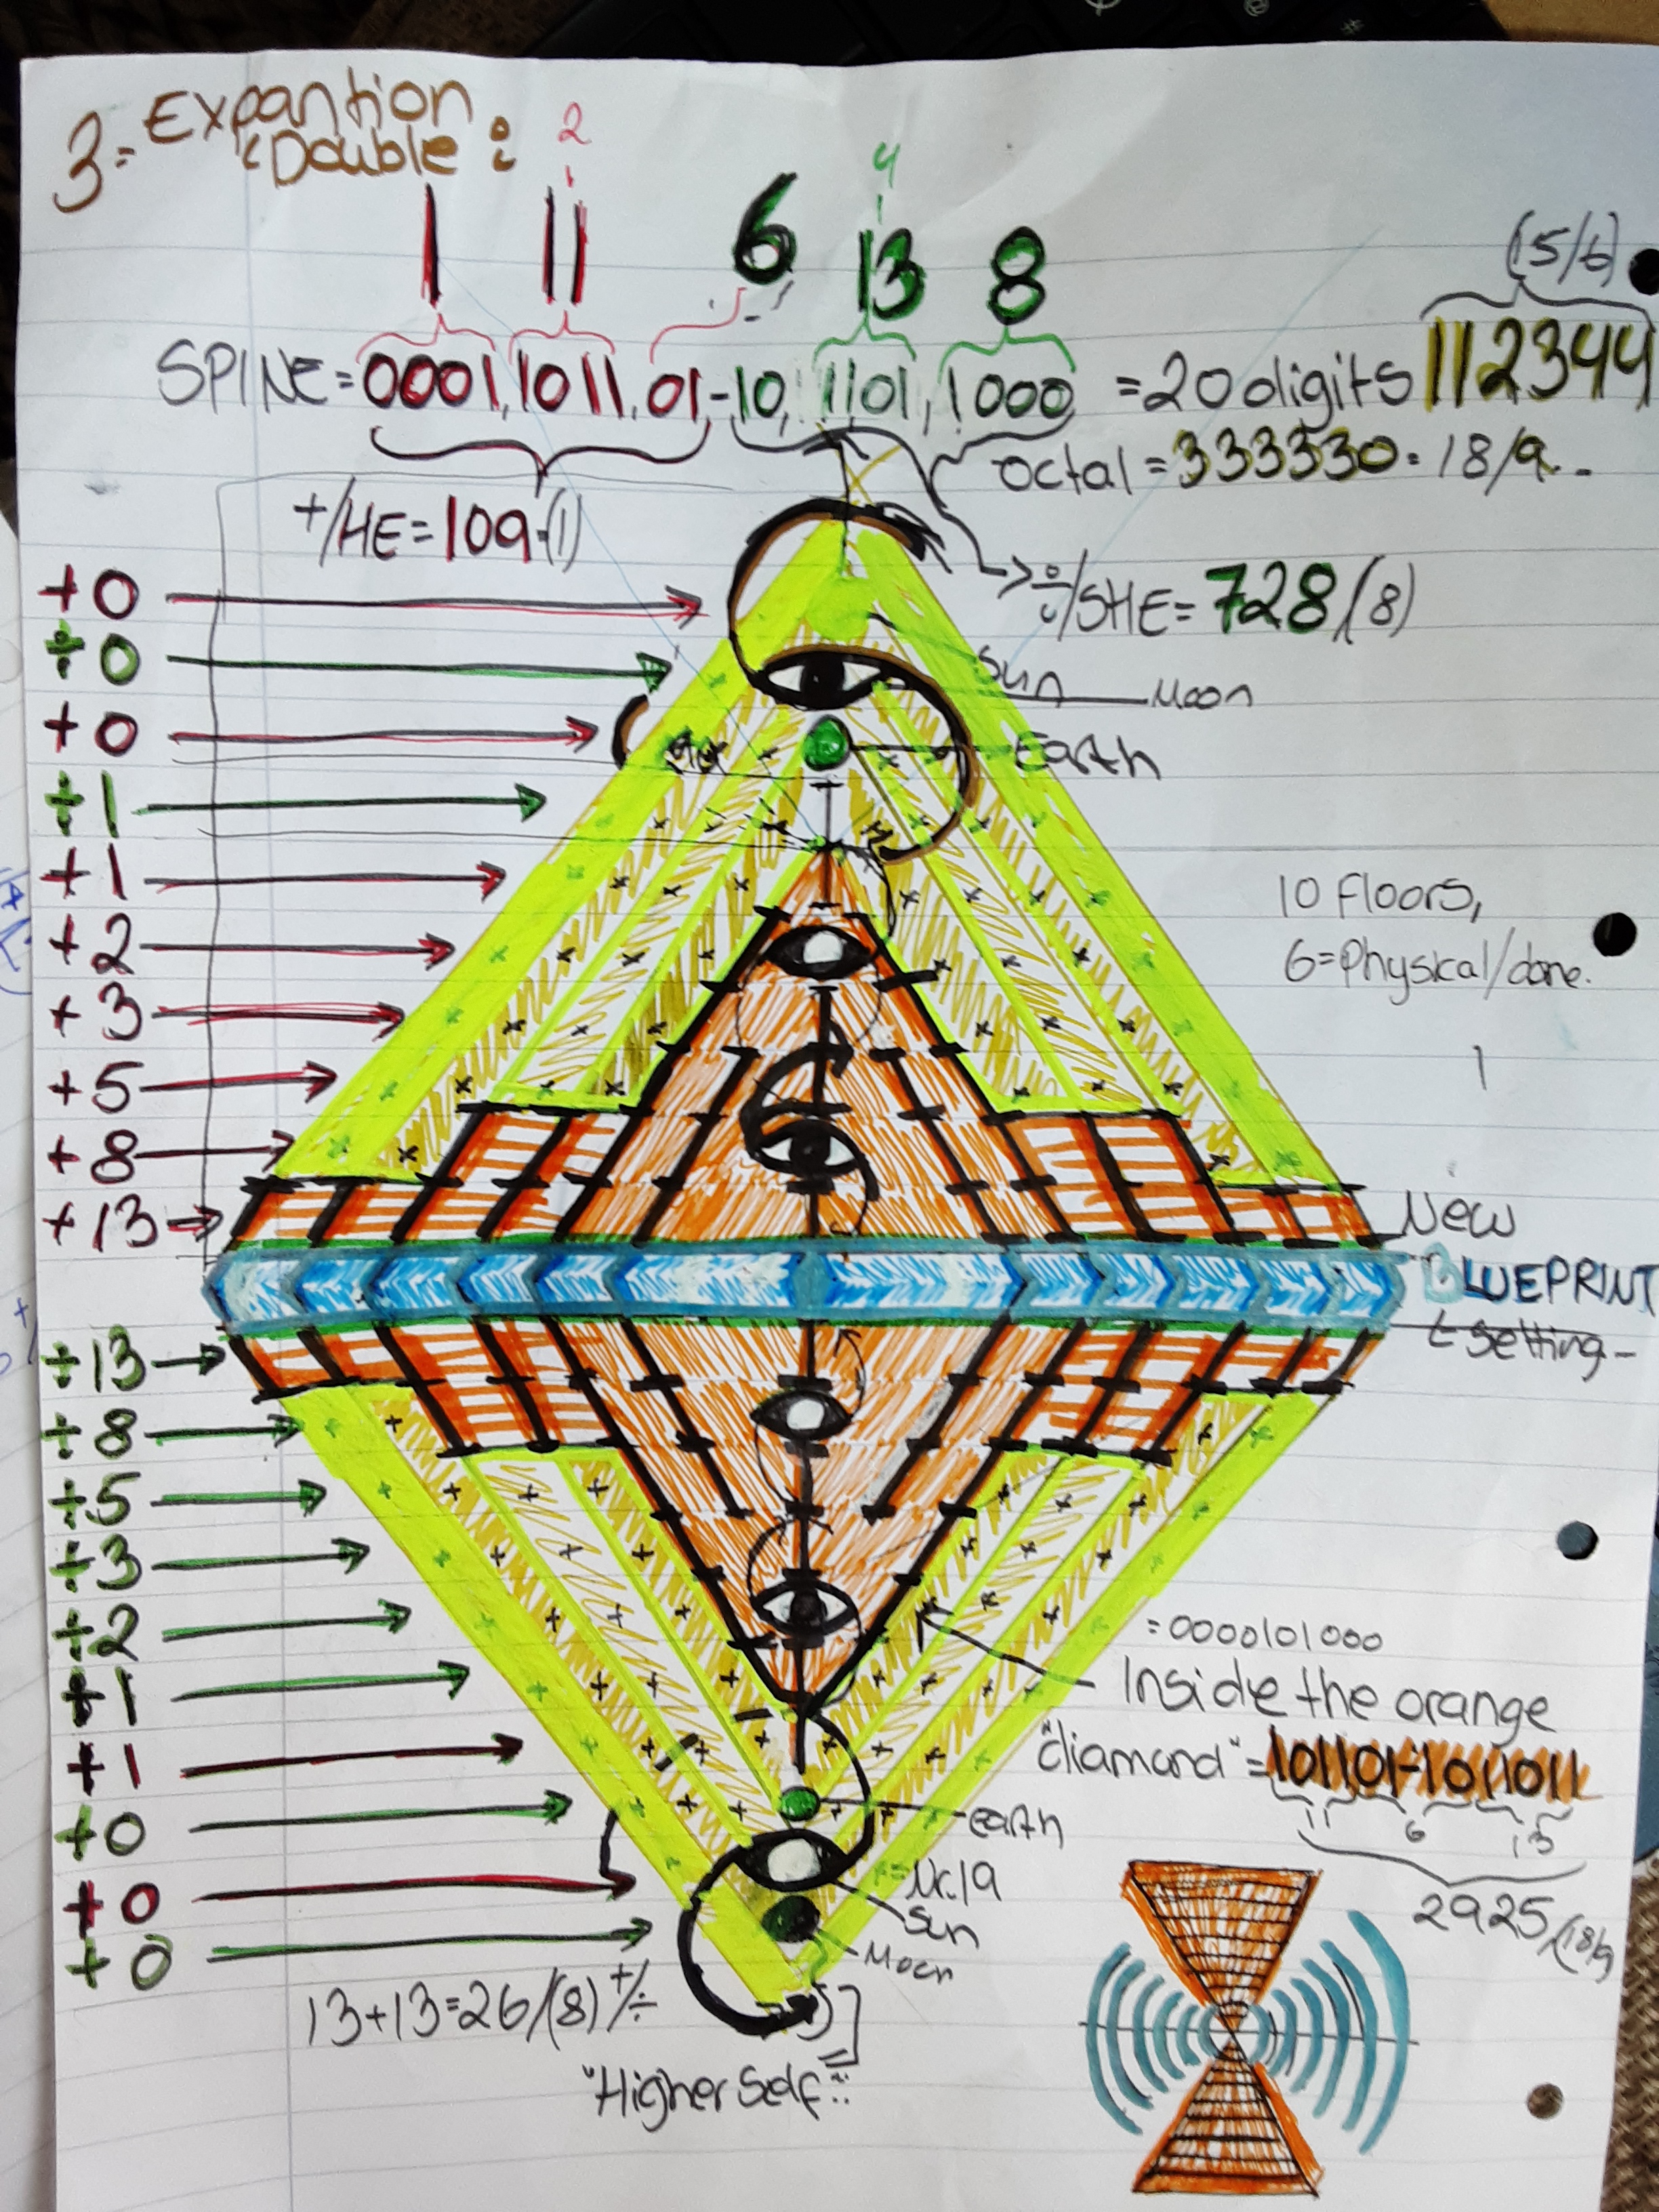 3= Expantion
"Double":
2
4
1 11 6 13 8
(15/6)
SPINE=0001,1011,01-10,1101,1000 =20digits 112344
octal=333330=18/9.-
+/HE=109-(1)
÷/SHE=728/(8)
+0
÷0
+0
÷1
+1
+2
+3
+5
+8
+13
Sun
Moon
Earth
10 Floors,
6=Physical/done.
1
New
BLUEPRINT
Setting-
÷13
÷8
÷5
÷3
÷2
+1
+1
+0
+0
+0
=0000101000
Inside the orange
"diamond"=101101-1011011
11 6 13
2925/(18/9)
Earth
Nr.19
Sun
Moon
13+13=26/(8)+/÷
"Higher Self"::